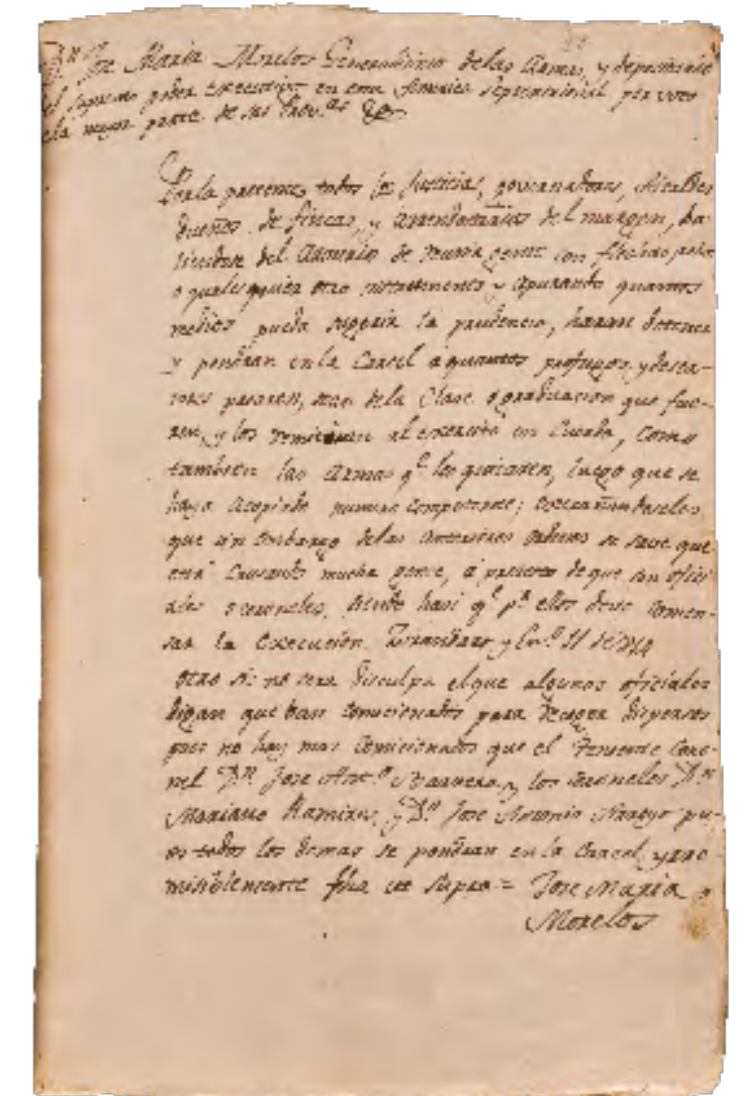 Dn Jose Maria Morelos Generalisimo de las Armas, y depositario
del Supremo poder executivo en esta America Septentrional por voto
de la mayor parte de sus Provas &a
Por la presente, todos los Justicias, governadores, Alcaldes
dueños de fincas, y arrendatarios del margen, ba-
liendose del Arvitrio de reunir gente con flechas, palos
o quales quiera otro instrumento y apurando quantos
medios pueda sugerir la prudencia, haran detener
y pondran en la Carcel a quantos profugos y deser-
tores pasaren, sean dela Clase o graduacion que fue-
ren, y los remitiran al exercito en Cuerda, como
tambien las Armas qe les quitaren, luego que se
haya acopiado numero competente;
que sin embargo delas anteriores ordenes se save que
esta Cruzando mucha gente, a pretexto de que son ofici-
ales o coroneles, siendo hasi qe pr ellos deve comen-
sar la Execucion. y En.o 11 de 814
Otro si: no sera disculpa el que algunos oficiales
digan que ban comicionados para recoger dispersos
pues no hay mas comicionados que el Teniente Coro-
nel Dn Jose Anto. Barrera, y los Coroneles Dn
Mariano Ramires, y Dn Jose Antonio Arroyo pu-
es todos los demas se pondran en la Carcel, yrre
misiblemente fha ut supra = Jose Maria
Morelos